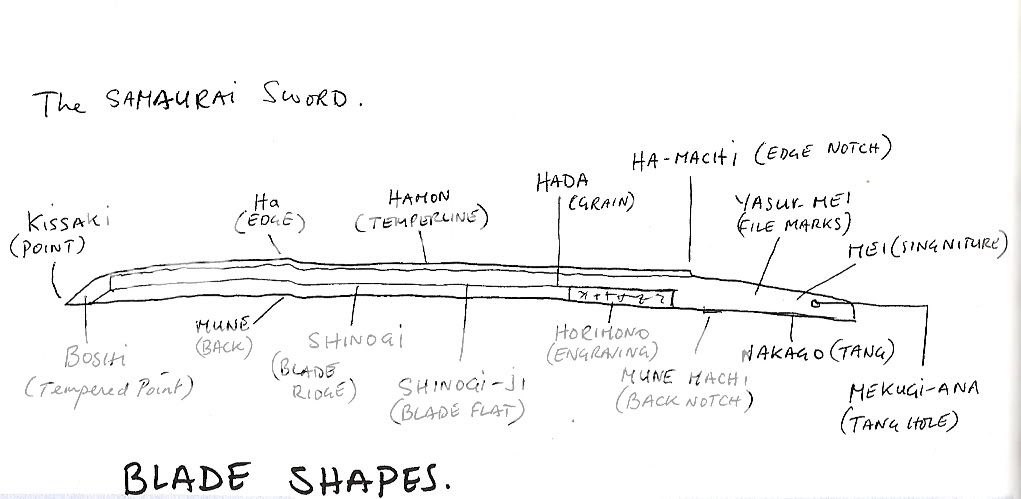 The SAMAURAI SWORD.
HA-MACHI (EDGE NOTCH)
HADA
(GRAIN)
Ha
(EDGE)
HAMON
(TEMPERLINE)
YASUR-MEI
(FILE MARKS)
KISSAKI
(POINT)
MEI (SINGNITURE)
MUNE
(BACK)
SHINOGI
(BLADE
RIDGE)
HORIMONO
(ENGRAVING)
NAKAGO (TANG)
BOSHI
(Tempered Point)
SHINOGI-JI
(BLADE FLAT)
MUNE MACHI
(BACK NOTCH)
MEKUGI-ANA
(TANG HOLE)
BLADE SHAPES.